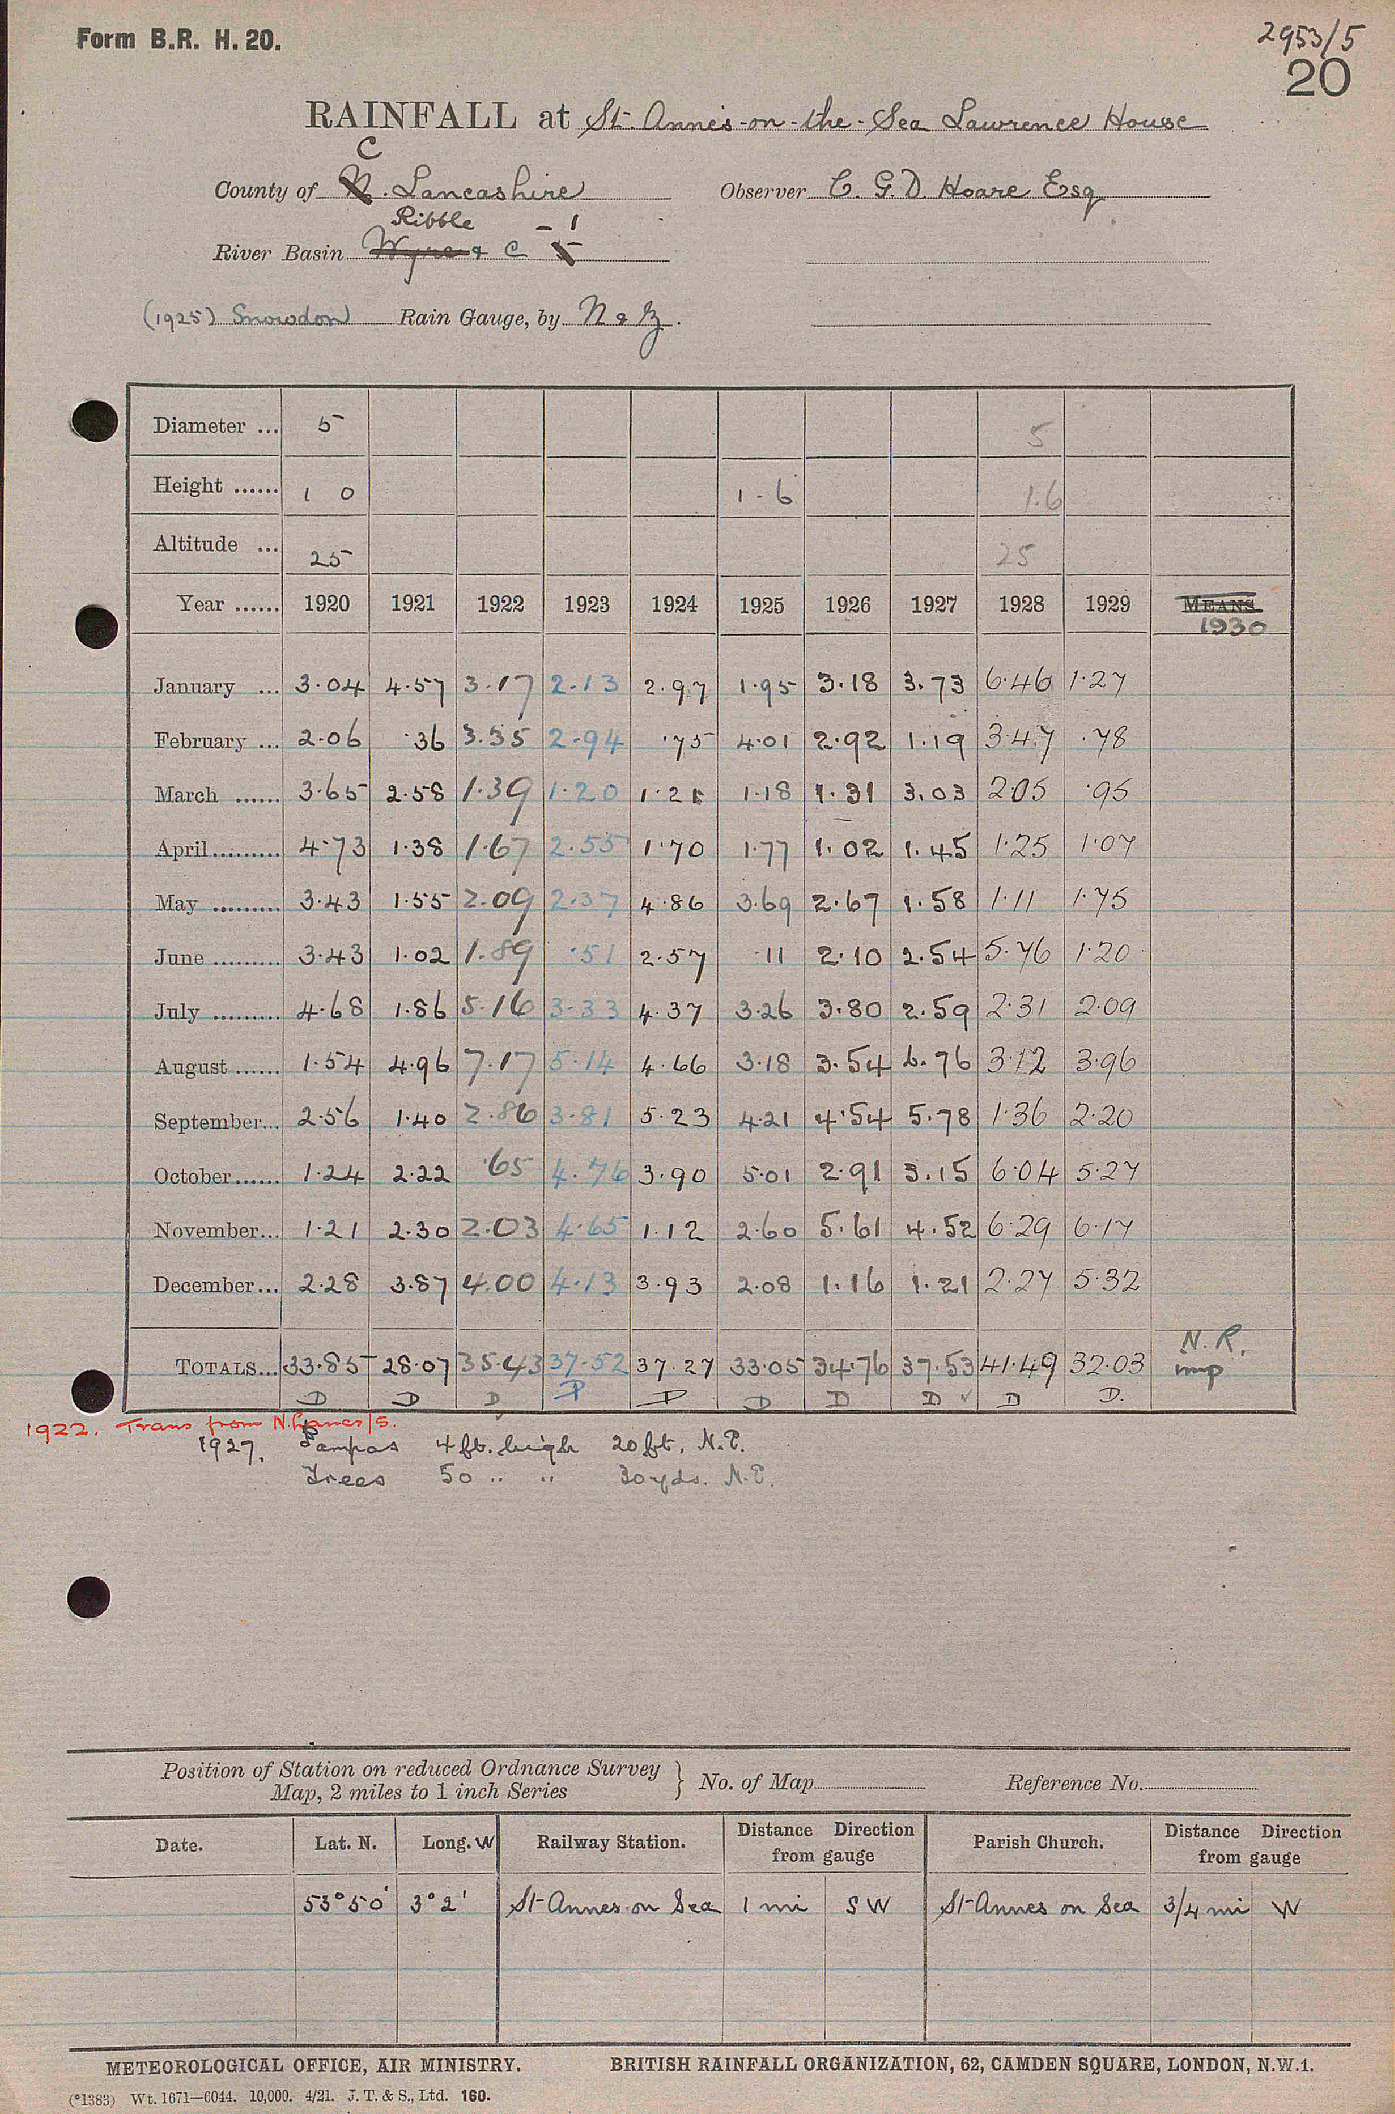 Form B.R. H. 20.
2953/5
20
RAINFALL at St Anne's-on-the-Sea Lawrence House
C
County of N. Lancashire Observer C. G. D. Hoare Esq
Ribble - 1
River Basin Wyre & C
(1925) Snowdon Rain Gauge, by N & Z.
Diameter ... 5 5
Height ...... 1 0 1-6 1.6
Altitude ... 25 25
Year ...... 1920 1921 1922 1923 1924 1925 1926 1927 1928 1929 MEANS
1930
January ... 3.04 4.57 3.17 2.13 2.97 1.95 3.18 3.73 6.46 1.27
February ... 2.06 .36 3.35 2.94 .75 4.01 2.92 1.19 3.47 .78
March ...... 3.65 2.58 1.39 1.20 1.21 1.18 1.31 3.03 2.05 .95
April ......... 4.73 1.38 1.67 2.55 1.70 1.77 1.02 1.45 1.25 1.07
May ......... 3.43 1.55 2.09 2.37 4.86 3.69 2.67 1.58 1.11 1.75
June ......... 3.43 1.02 1.89 .51 2.57 .11 2.10 2.54 5.76 1.20
July ......... 4.68 1.86 5.16 3.33 4.37 3.26 3.80 2.59 2.31 2.09
August ...... 1.54 4.96 7.17 5.14 4.66 3.18 3.54 6.76 3.12 3.96
September... 2.56 1.40 2.86 3.81 5.23 4.21 4.54 5.78 1.36 2.20
October...... 1.24 2.22 .65 4.76 3.90 5.01 2.91 3.15 6.04 5.27
November... 1.21 2.30 2.03 4.65 1.12 2.60 5.61 4.52 6.29 6.17
December... 2.28 3.87 4.00 4.13 3.93 2.08 1.16 1.21 2.27 5.32
N.R.
TOTALS... 33.85 28.07 35.43 37.52 37.27 33.05 34.76 37.53 41.49 32.03 imp
D D D P D D D D ✓ D D.
1922. Trans from N. Lancs/5.
1927. Pampas 4 ft. high 20 ft. N.E.
Trees 50 " " 30 yds. N.E.
Position of Station on reduced Ordnance Survey
Map, 2 miles to 1 inch Series } No. of Map Reference No.
Date. Lat. N. Long. W Railway Station. Distance Direction from gauge Parish Church. Distance Direction from gauge
53°50' 3°2' St Annes on Sea 1 mi SW St Annes on Sea 3/4 mi W
METEOROLOGICAL OFFICE, AIR MINISTRY. BRITISH RAINFALL ORGANIZATION, 62, CAMDEN SQUARE, LONDON, N.W.1.
(*1383) Wt. 1671—6044. 10,000. 4/21. J. T. & S., Ltd. 160.